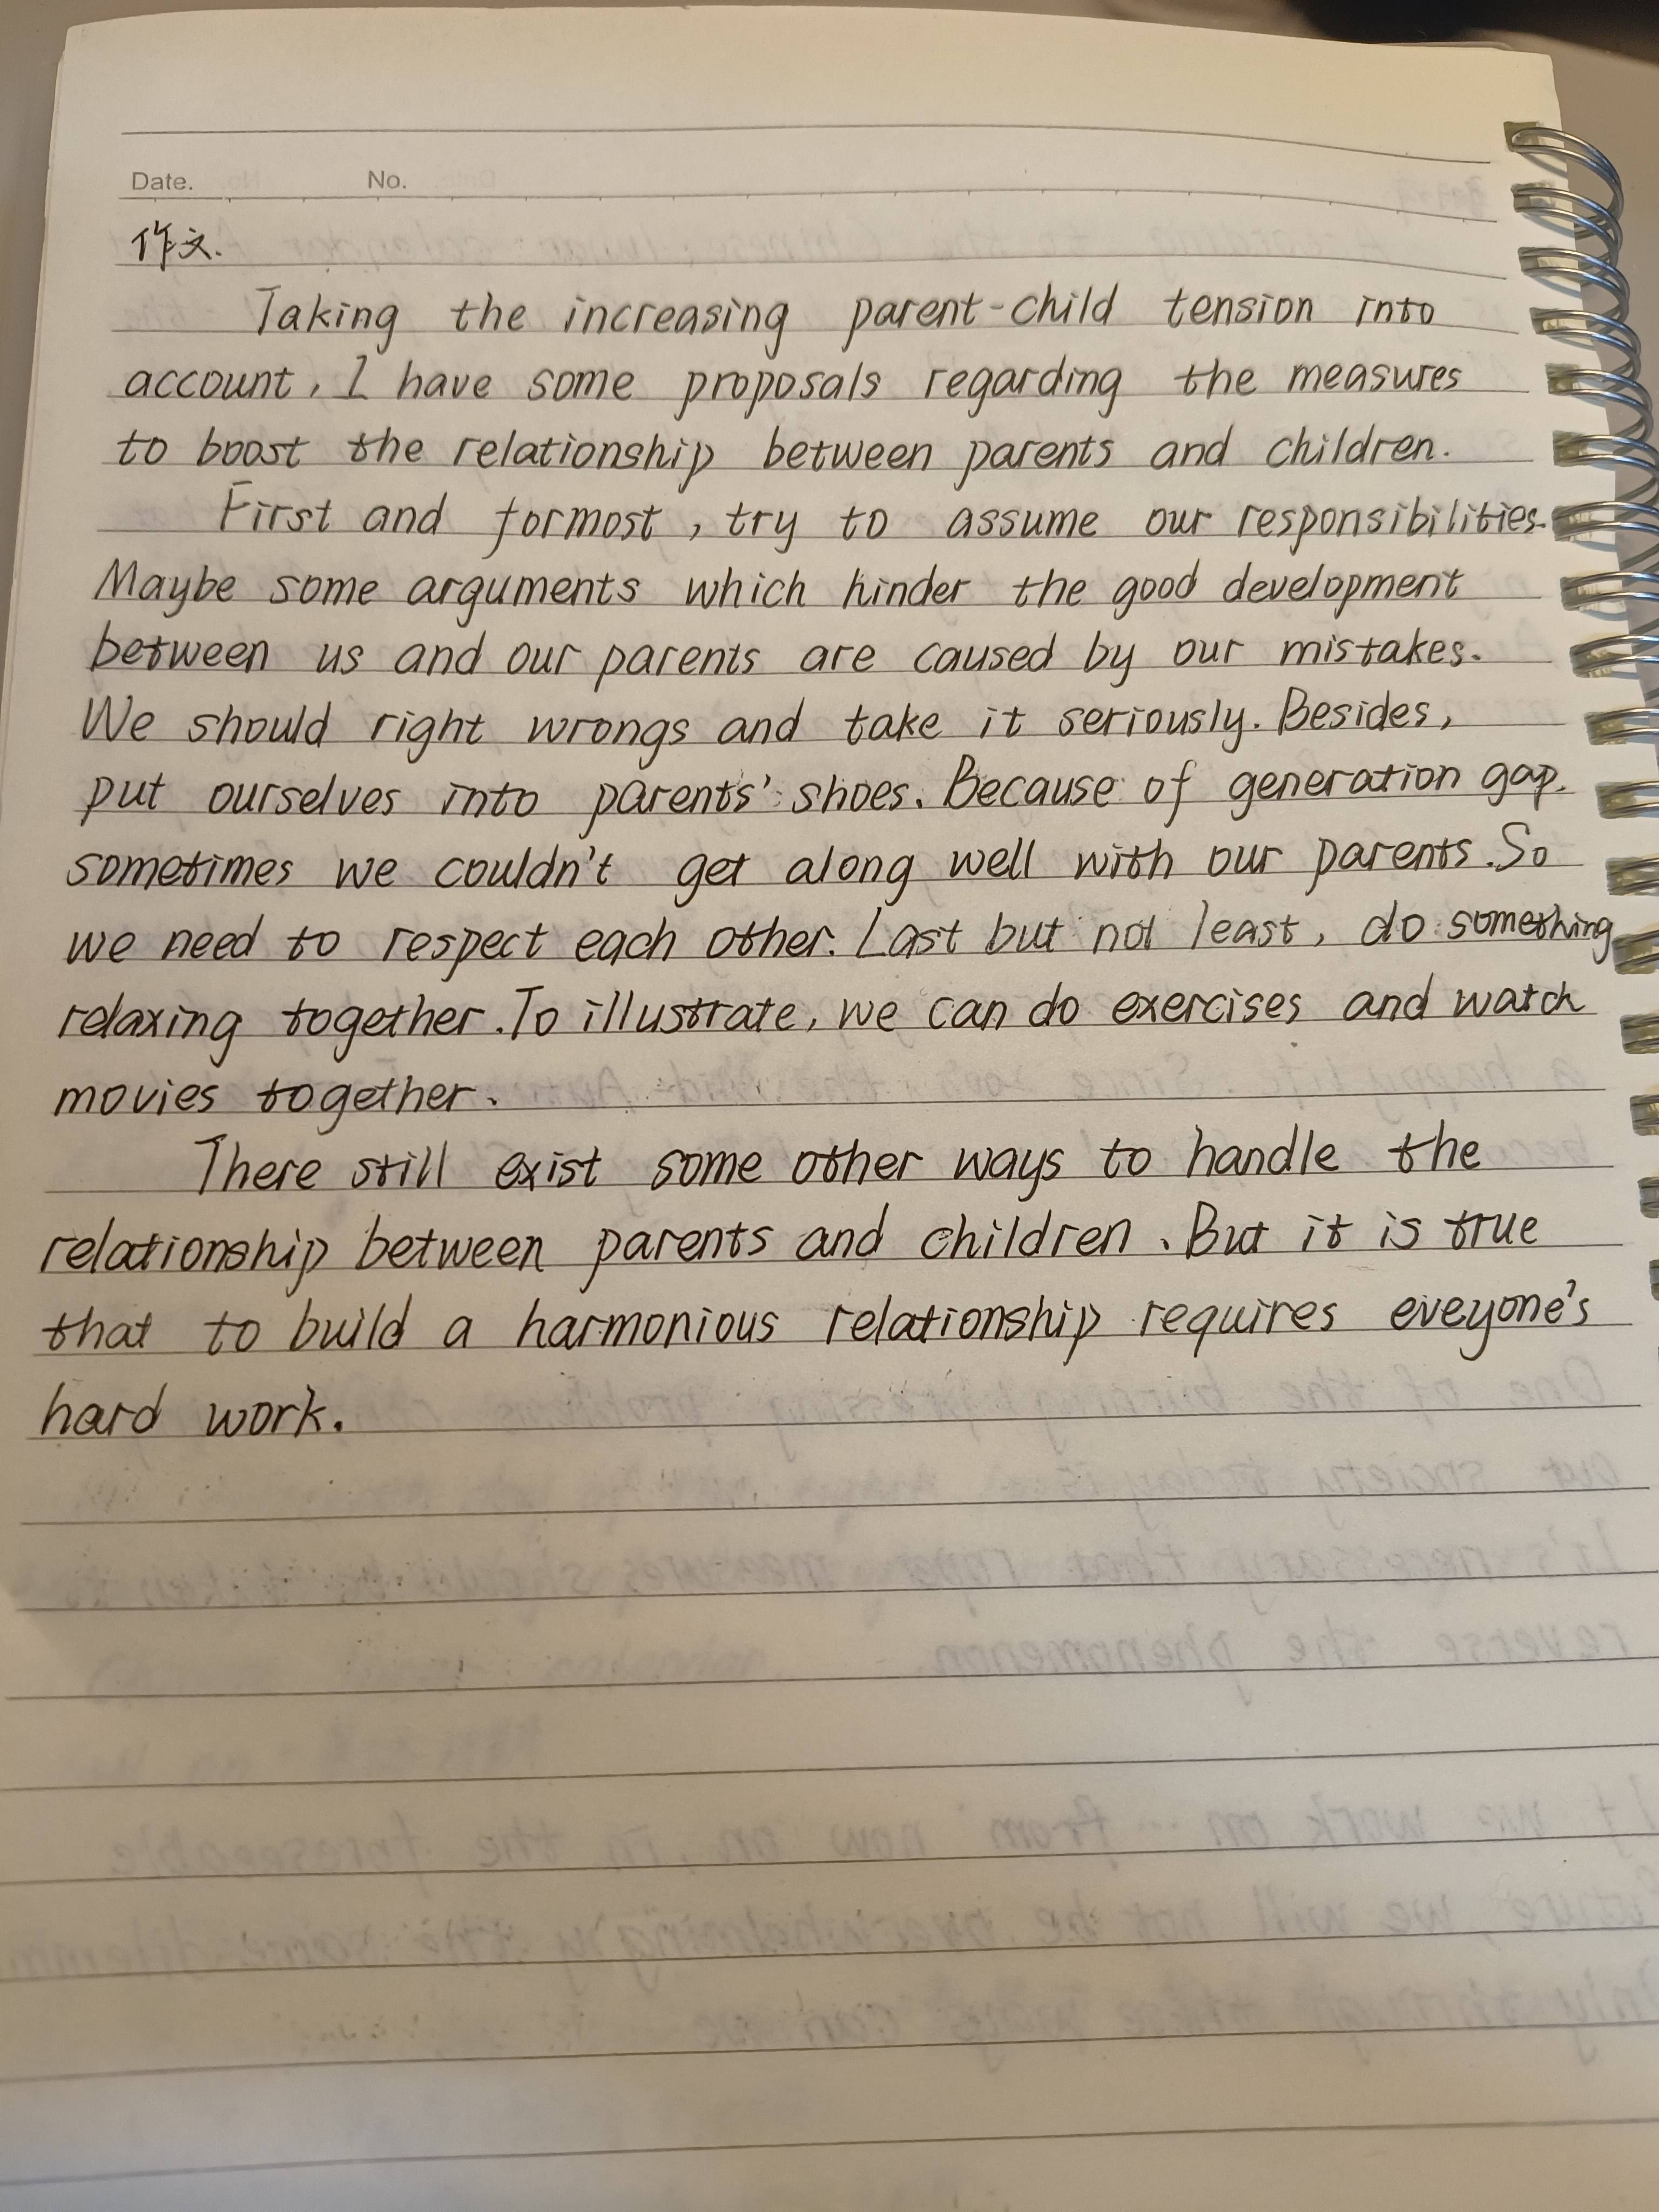 Date. No.
作文.
Taking the increasing parent-child tension into
account, I have some proposals regarding the measures
to boost the relationship between parents and children.
First and formost, try to assume our responsibilities.
Maybe some arguments which hinder the good development
between us and our parents are caused by our mistakes.
We should right wrongs and take it seriously. Besides,
put ourselves into parents' shoes. Because of generation gap.
sometimes we couldn't get along well with our parents. So
we need to respect each other. Last but not least, do something
relaxing together. To illustrate, we can do exercises and watch
movies together.
There still exist some other ways to handle the
relationship between parents and children. But it is true
that to build a harmonious relationship requires eveyone's
hard work.